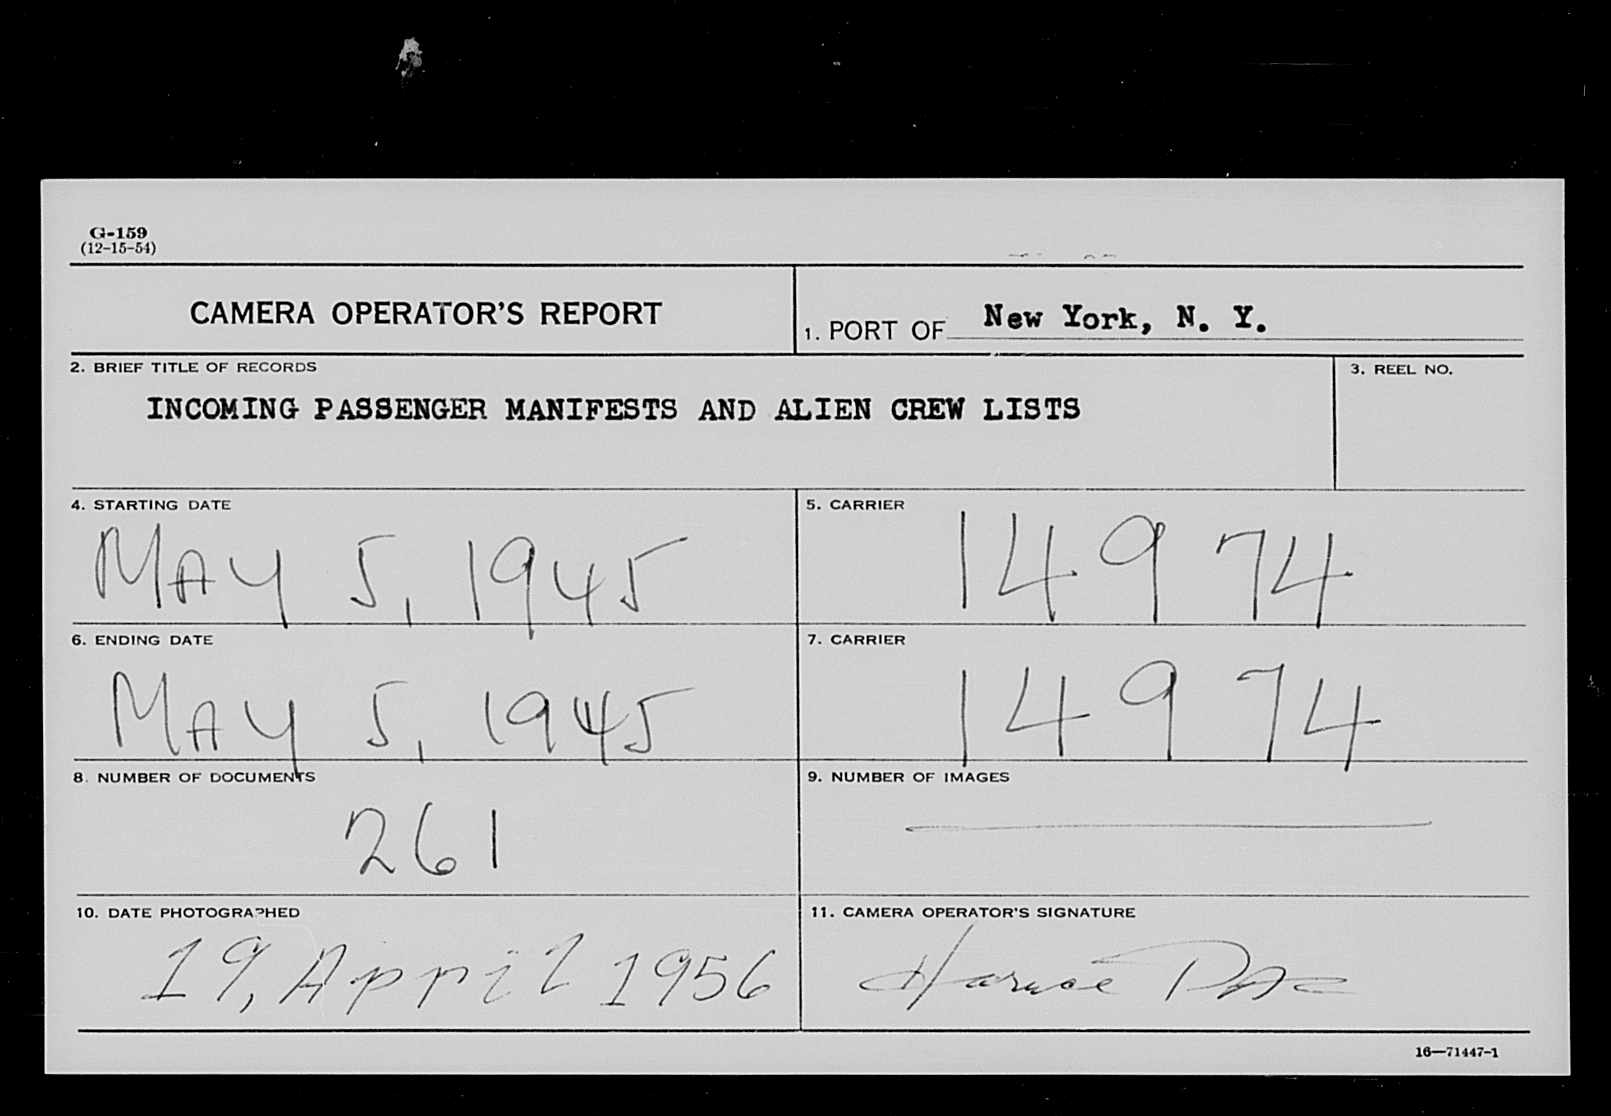 G-159
(12-15-54)
CAMERA OPERATOR'S REPORT
1. PORT OF New York, N. Y.
2. BRIEF TITLE OF RECORDS
INCOMING PASSENGER MANIFESTS AND ALIEN CREW LISTS
3. REEL NO.
4. STARTING DATE
MAY 5, 1945
5. CARRIER
14974
6. ENDING DATE
MAY 5, 1945
7. CARRIER
14974
8. NUMBER OF DOCUMENTS
261
9. NUMBER OF IMAGES
10. DATE PHOTOGRAPHED
19, April 1956
11. CAMERA OPERATOR'S SIGNATURE
16—71447-1